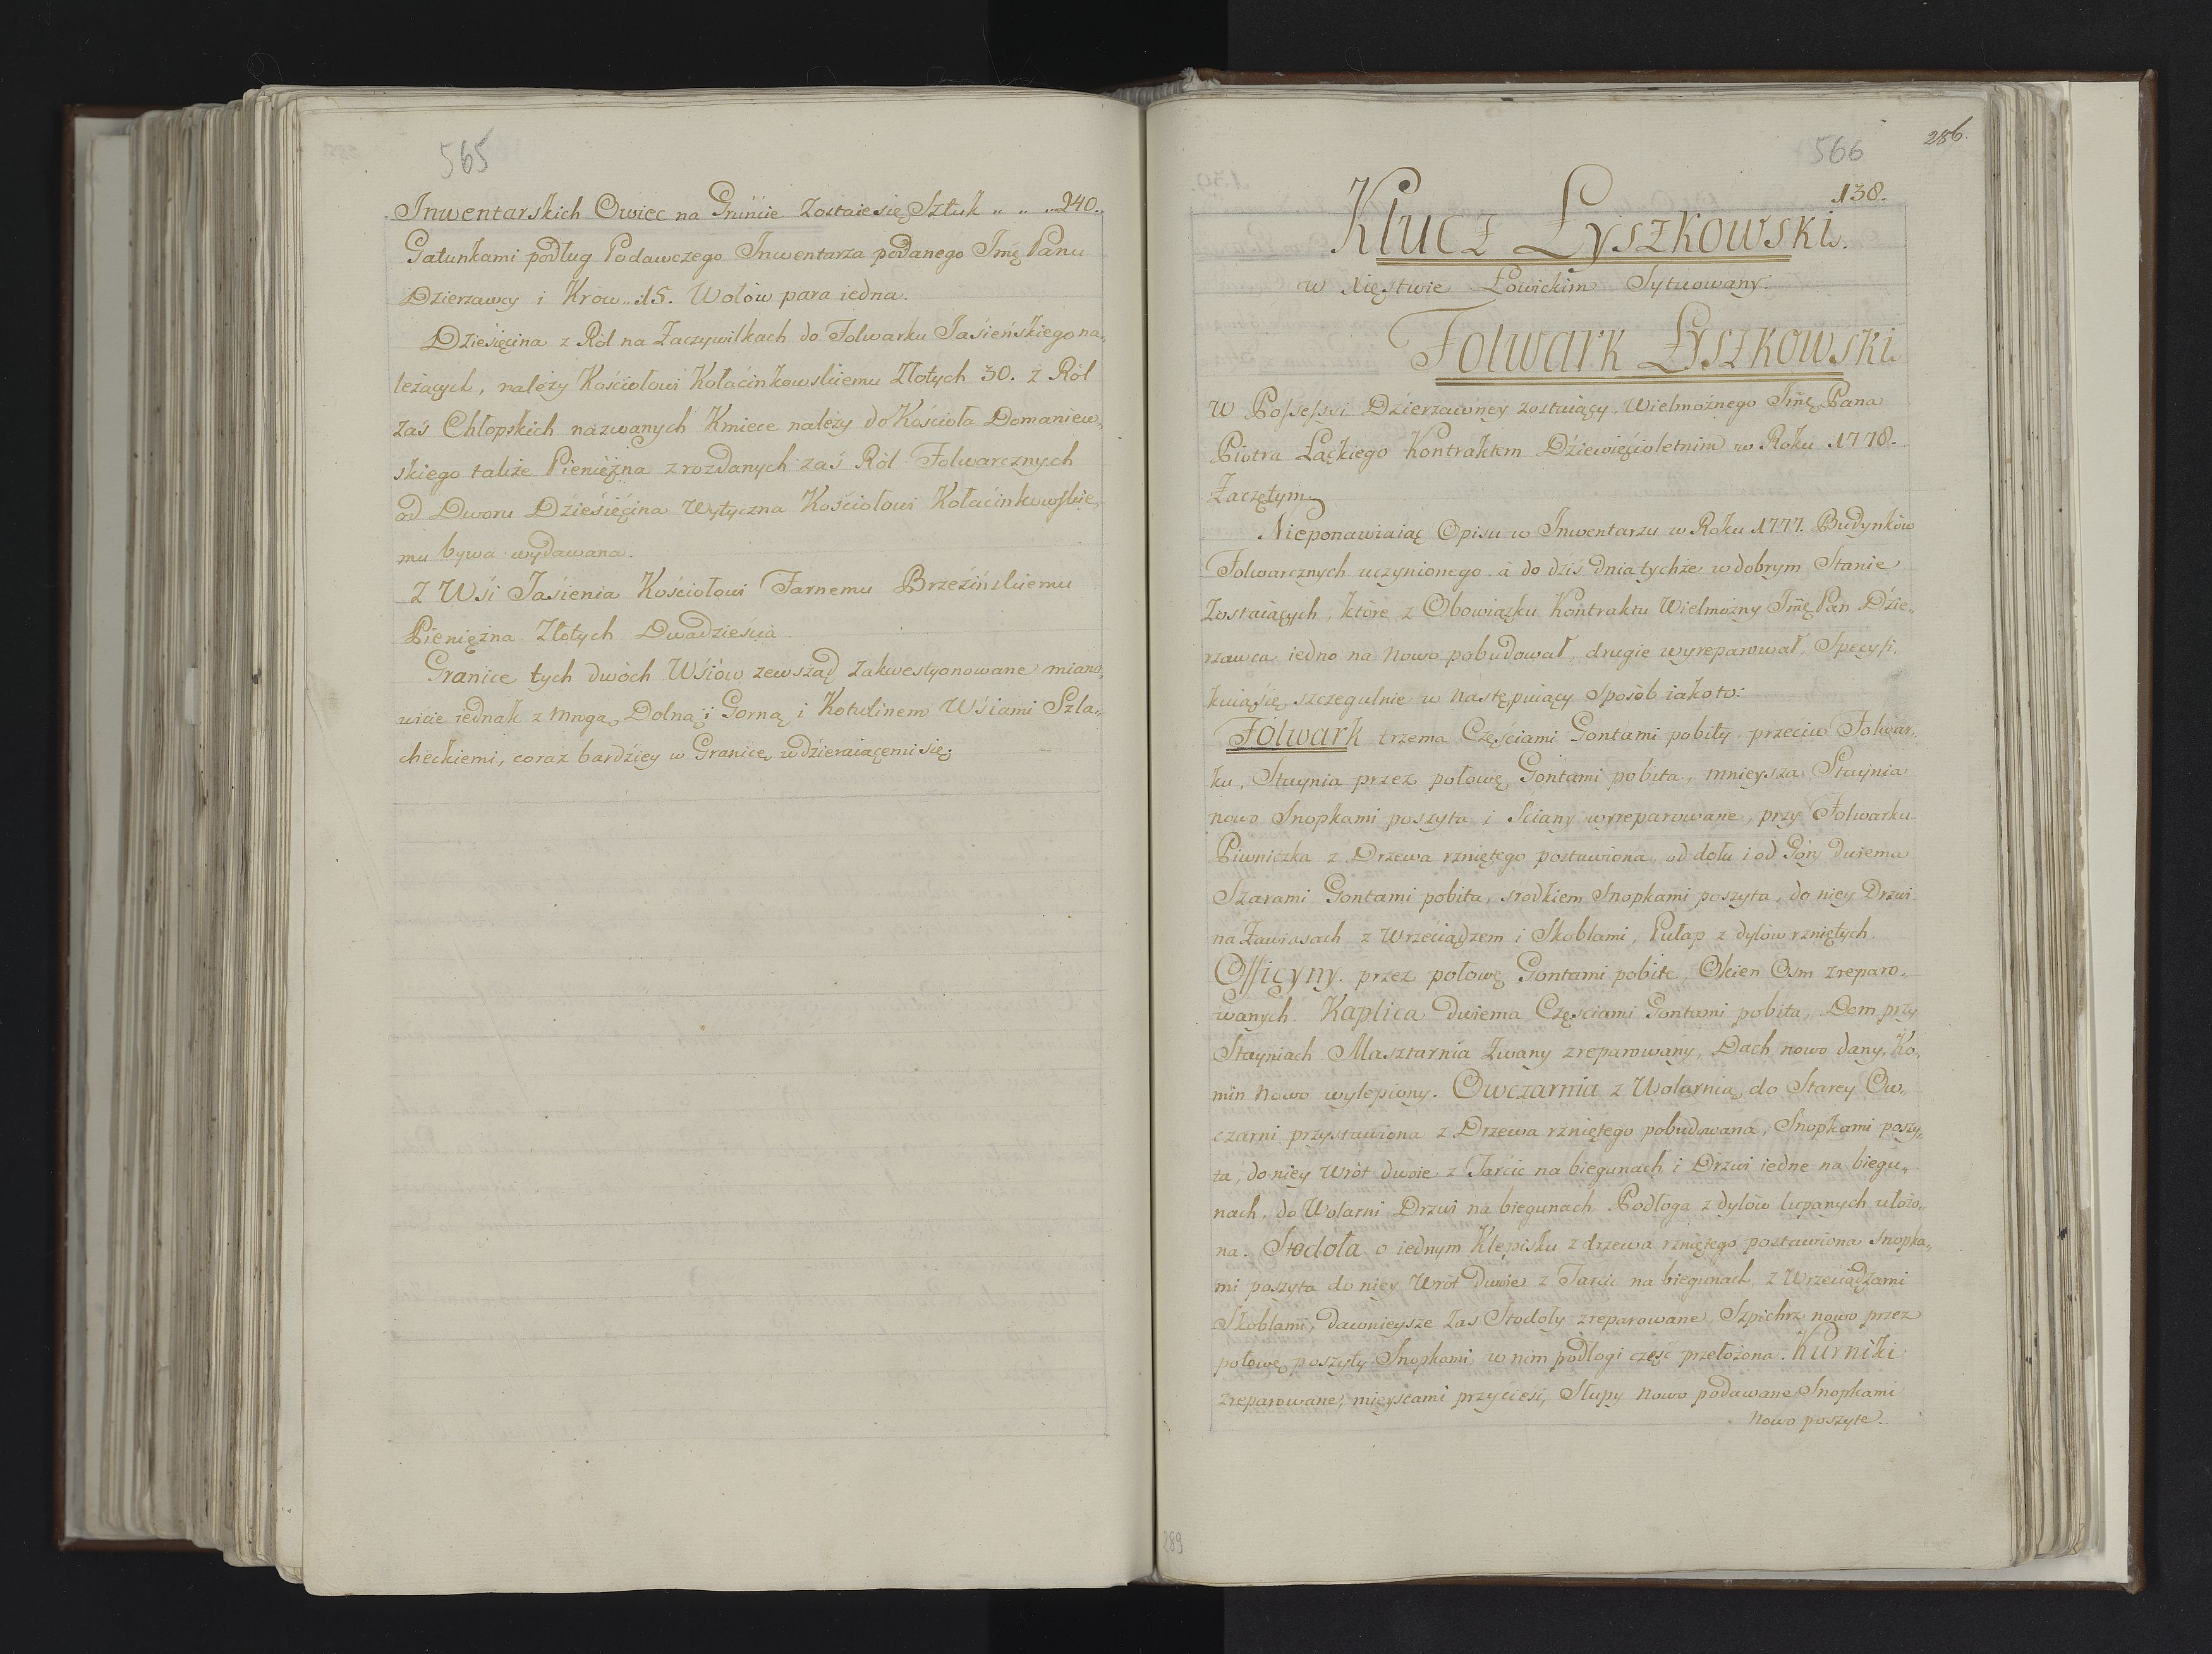 565
Inwentarskich Owiec na Gruńcie zostaie się Sztuk „ „ „ 240.
Gatunkami podług Podawczego Inwentarza podanego Jmć Panu
Dzierzawcy i Krow „ 15. Wołów para iedna.
Dzieśięcina z Ról na Zaczywilkach do Folwarku Jasieńskiego na„
leżących, nalezy Kościołowi Kołaćinkowskiemu Złotych 30. z Ról
zaś Chłopskich nazwanych Kmiece nalezy do Kościoła Domaniew„
skiego takze Pieniężna z rozdanych zaś Ról Folwarcznych
od Dworu Dzieśięćina Wytyczna Kościołowi Kołaćinkowskie„
mu bywa wydawana.
Z Wśi Jaśienia Kościołowi Farnemu Brzeźińskiemu
Pieniężna Złotych Dwadzieścia.
Granice tych dwóch Wśiów zewsząd zakwestyonowane miano„
wicie iednak z Mrogą Dolną i Gorną i Kotulinem Wśiami Szla„
checkiemi, coraz bardźiey w Granice wdzieraiącemi się.
286.
566
138.
Klucz Łyszkowski.
w Xięstwie Łowickim Sytuowany.
Folwark Łyszkowski
W Possessyi Dzierzawney zostaiący Wielmożnego Jmć Pana
Piotra Łąckiego Kontraktem Dźiewięćioletnim w Roku 1778.
Zaczętym.
Nieponawiaiąc Opisu w Inwentarzu w Roku 1777. Budynków
Folwarcznych uczynionego a do dźiś dnia tychże w dobrym Stanie
Zostaiących, które z Obowiązku Kontraktu Wielmożny Jmć Pan Dźie„
rzawca iedno na Nowo pobudował, drugie wyreparował, Specyfi„
kuią się szczegulnie w następuiący sposób iako to:
Folwark trzema Częściami Gontami pobity, przeciw Folwar„
ku, Staynia przez połowę Gontami pobita, mnieysza Staynia
nowo Snopkami poszyta i Sciany wyreparowane, przy Folwarku
Piwniczka z Drzewa rzniętego postawiona, od dołu i od Góry dwiema
Szarami Gontami pobita, srodkiem Snopkami poszyta, do niey Drzwi
na Zawiasach z Wrzeciądzem i Skoblami, Pułap z dylów rzniętych.
Officyny przez połowę Gontami pobite, Okien Osm zreparo„
wanych. Kaplica dwiema Częściami Gontami pobita, Dom przy
Stayniach Masztarnia zwany zreparowany, Dach nowo dany, Ko„
min nowo wylepiony. Owczarnia z Wolarnią do Starey Ow„
czarni przystawiona z Drzewa rzniętego pobudowana, Snopkami poszy„
ta, do niey Wrót dwoie z Tarcic na biegunach i Drzwi iedne na biegu„
nach, do Wolarni Drzwi na biegunach Podłoga z dylów łupanych ułożo„
na. Stodoła o iednym Klepisku z drzewa rzniętego postawiona Snopka„
mi poszyta do niey Wrót dwoie z Tarcic na biegunach z Wrzeciądzami
Skoblami, dawnieysze zaś Stodoły zreparowane, Szpichrz nowo przez
połowę poszyty Snopkami, w nim podłogi część przełożona. Kurniki
zreparowane, mieyscami przyciesi, Słupy nowo podawane Snopkami
nowo poszyte.
289